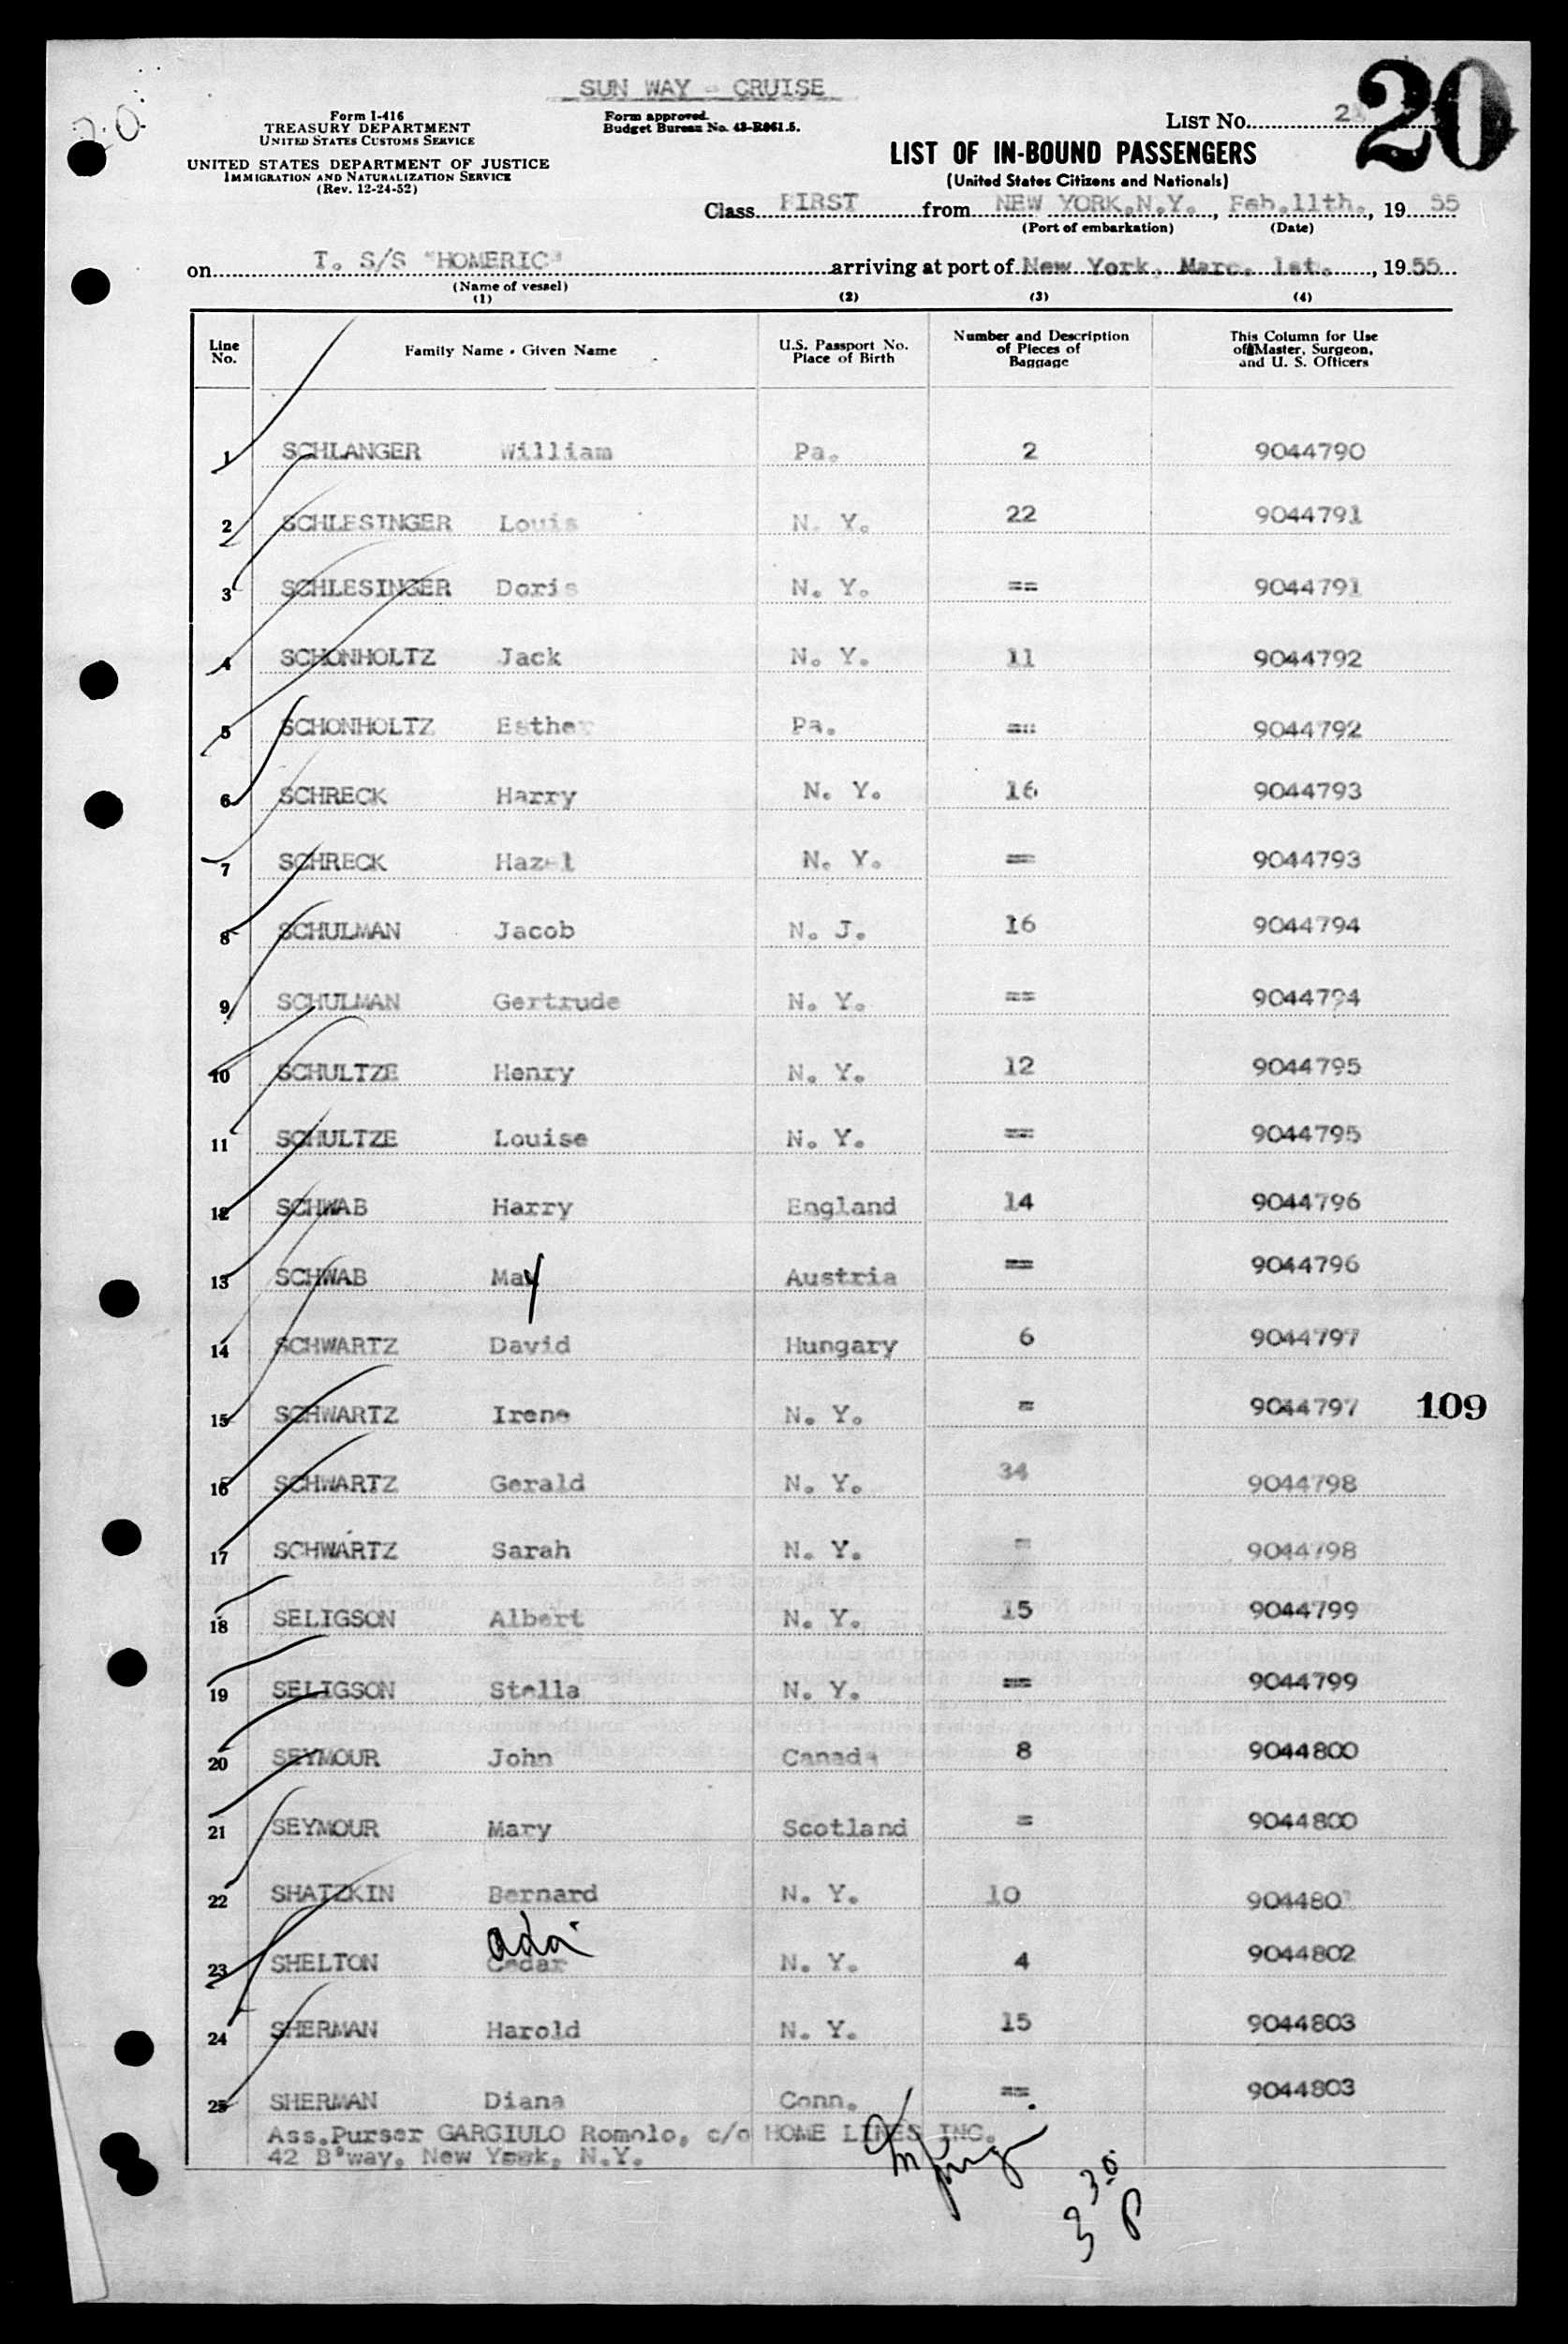 20
SUN WAY - CRUISE
20
Form I-416
TREASURY DEPARTMENT
UNITED STATES CUSTOMS SERVICE
UNITED STATES DEPARTMENT OF JUSTICE
IMMIGRATION AND NATURALIZATION SERVICE
(Rev. 12-24-52)
Form approved.
Budget Bureau No. 43-R061.5.
LIST No.
LIST OF IN-BOUND PASSENGERS
(United States Citizens and Nationals)
Class FIRST from NEW YORK.N.Y., Feb.11th., 19 55
(Port of embarkation) (Date)
on T. S/S "HOMERIC" arriving at port of New York, Marc. 1st., 19 55
(Name of vessel)
(1) (2) (3) (4)
Line No. Family Name - Given Name U.S. Passport No. Place of Birth Number and Description of Pieces of Baggage This Column for Use of Master, Surgeon, and U. S. Officers
1 SCHLANGER William Pa. 2 9044790
2 SCHLESINGER Louis N. Y. 22 9044791
3 SCHLESINGER Doris N. Y. == 9044791
4 SCHONHOLTZ Jack N. Y. 11 9044792
5 SCHONHOLTZ Esther Pa. == 9044792
6 SCHRECK Harry N. Y. 16 9044793
7 SCHRECK Hazel N. Y. == 9044793
8 SCHULMAN Jacob N. J. 16 9044794
9 SCHULMAN Gertrude N. Y. == 9044794
10 SCHULTZE Henry N. Y. 12 9044795
11 SCHULTZE Louise N. Y. == 9044795
12 SCHWAB Harry England 14 9044796
13 SCHWAB May Austria == 9044796
14 SCHWARTZ David Hungary 6 9044797
15 SCHWARTZ Irene N. Y. = 9044797 109
16 SCHWARTZ Gerald N. Y. 34 9044798
17 SCHWARTZ Sarah N. Y. = 9044798
18 SELIGSON Albert N. Y. 15 9044799
19 SELIGSON Stella N. Y. == 9044799
20 SEYMOUR John Canada 8 9044800
21 SEYMOUR Mary Scotland = 9044800
22 SHATZKIN Bernard N. Y. 10 9044801
Ada
23 SHELTON Cedar N. Y. 4 9044802
24 SHERMAN Harold N. Y. 15 9044803
25 SHERMAN Diana Conn. == 9044803
Ass.Purser GARGIULO Romolo, c/o HOME LINES INC.
42 B'way, New York, N.Y.
3 30 P